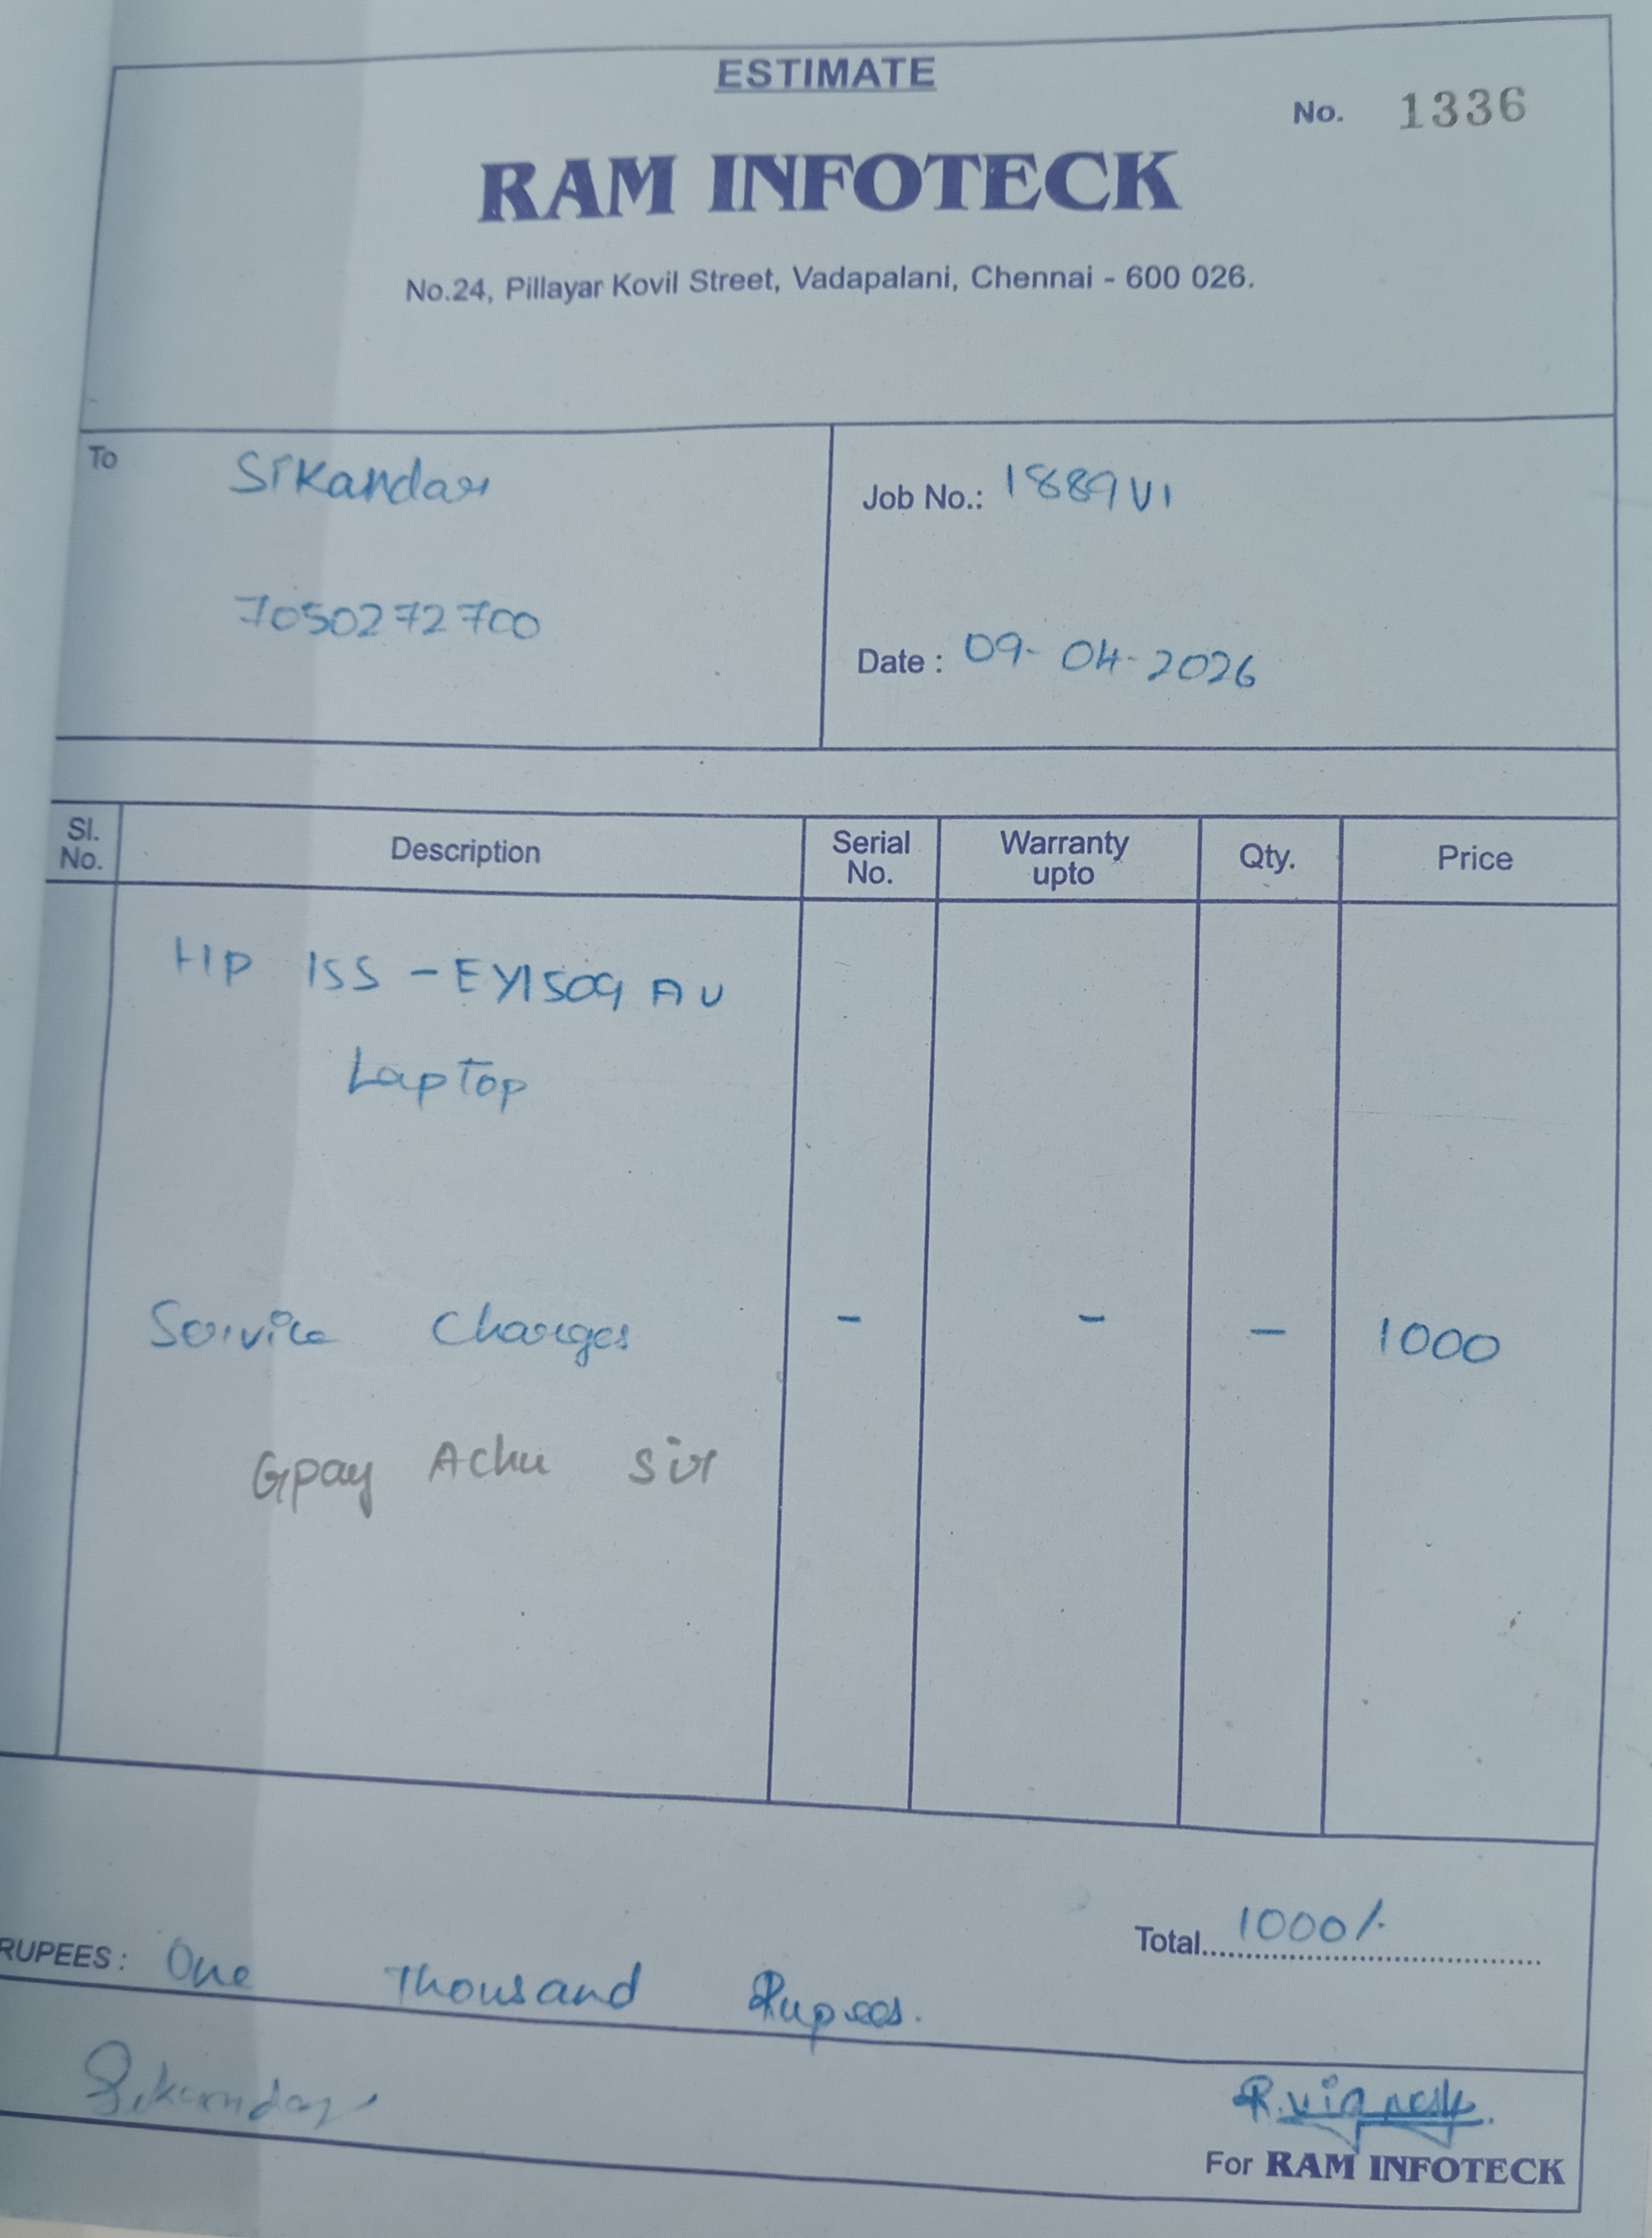 ESTIMATE
No. 1336
RAM INFOTECK
No.24, Pillayar Kovil Street, Vadapalani, Chennai - 600 026.
To Sikandar
7050272700
Job No.: 1889VI
Date : 09-04-2026
Sl. No. Description Serial No. Warranty upto Qty. Price
HP 15S - EY1509AU
Laptop
Service Charges - - - 1000
Gpay Achu sir
Total 1000/-
RUPEES : One Thousand Rupees.
Sikandar
R.Vignesh.
For RAM INFOTECK